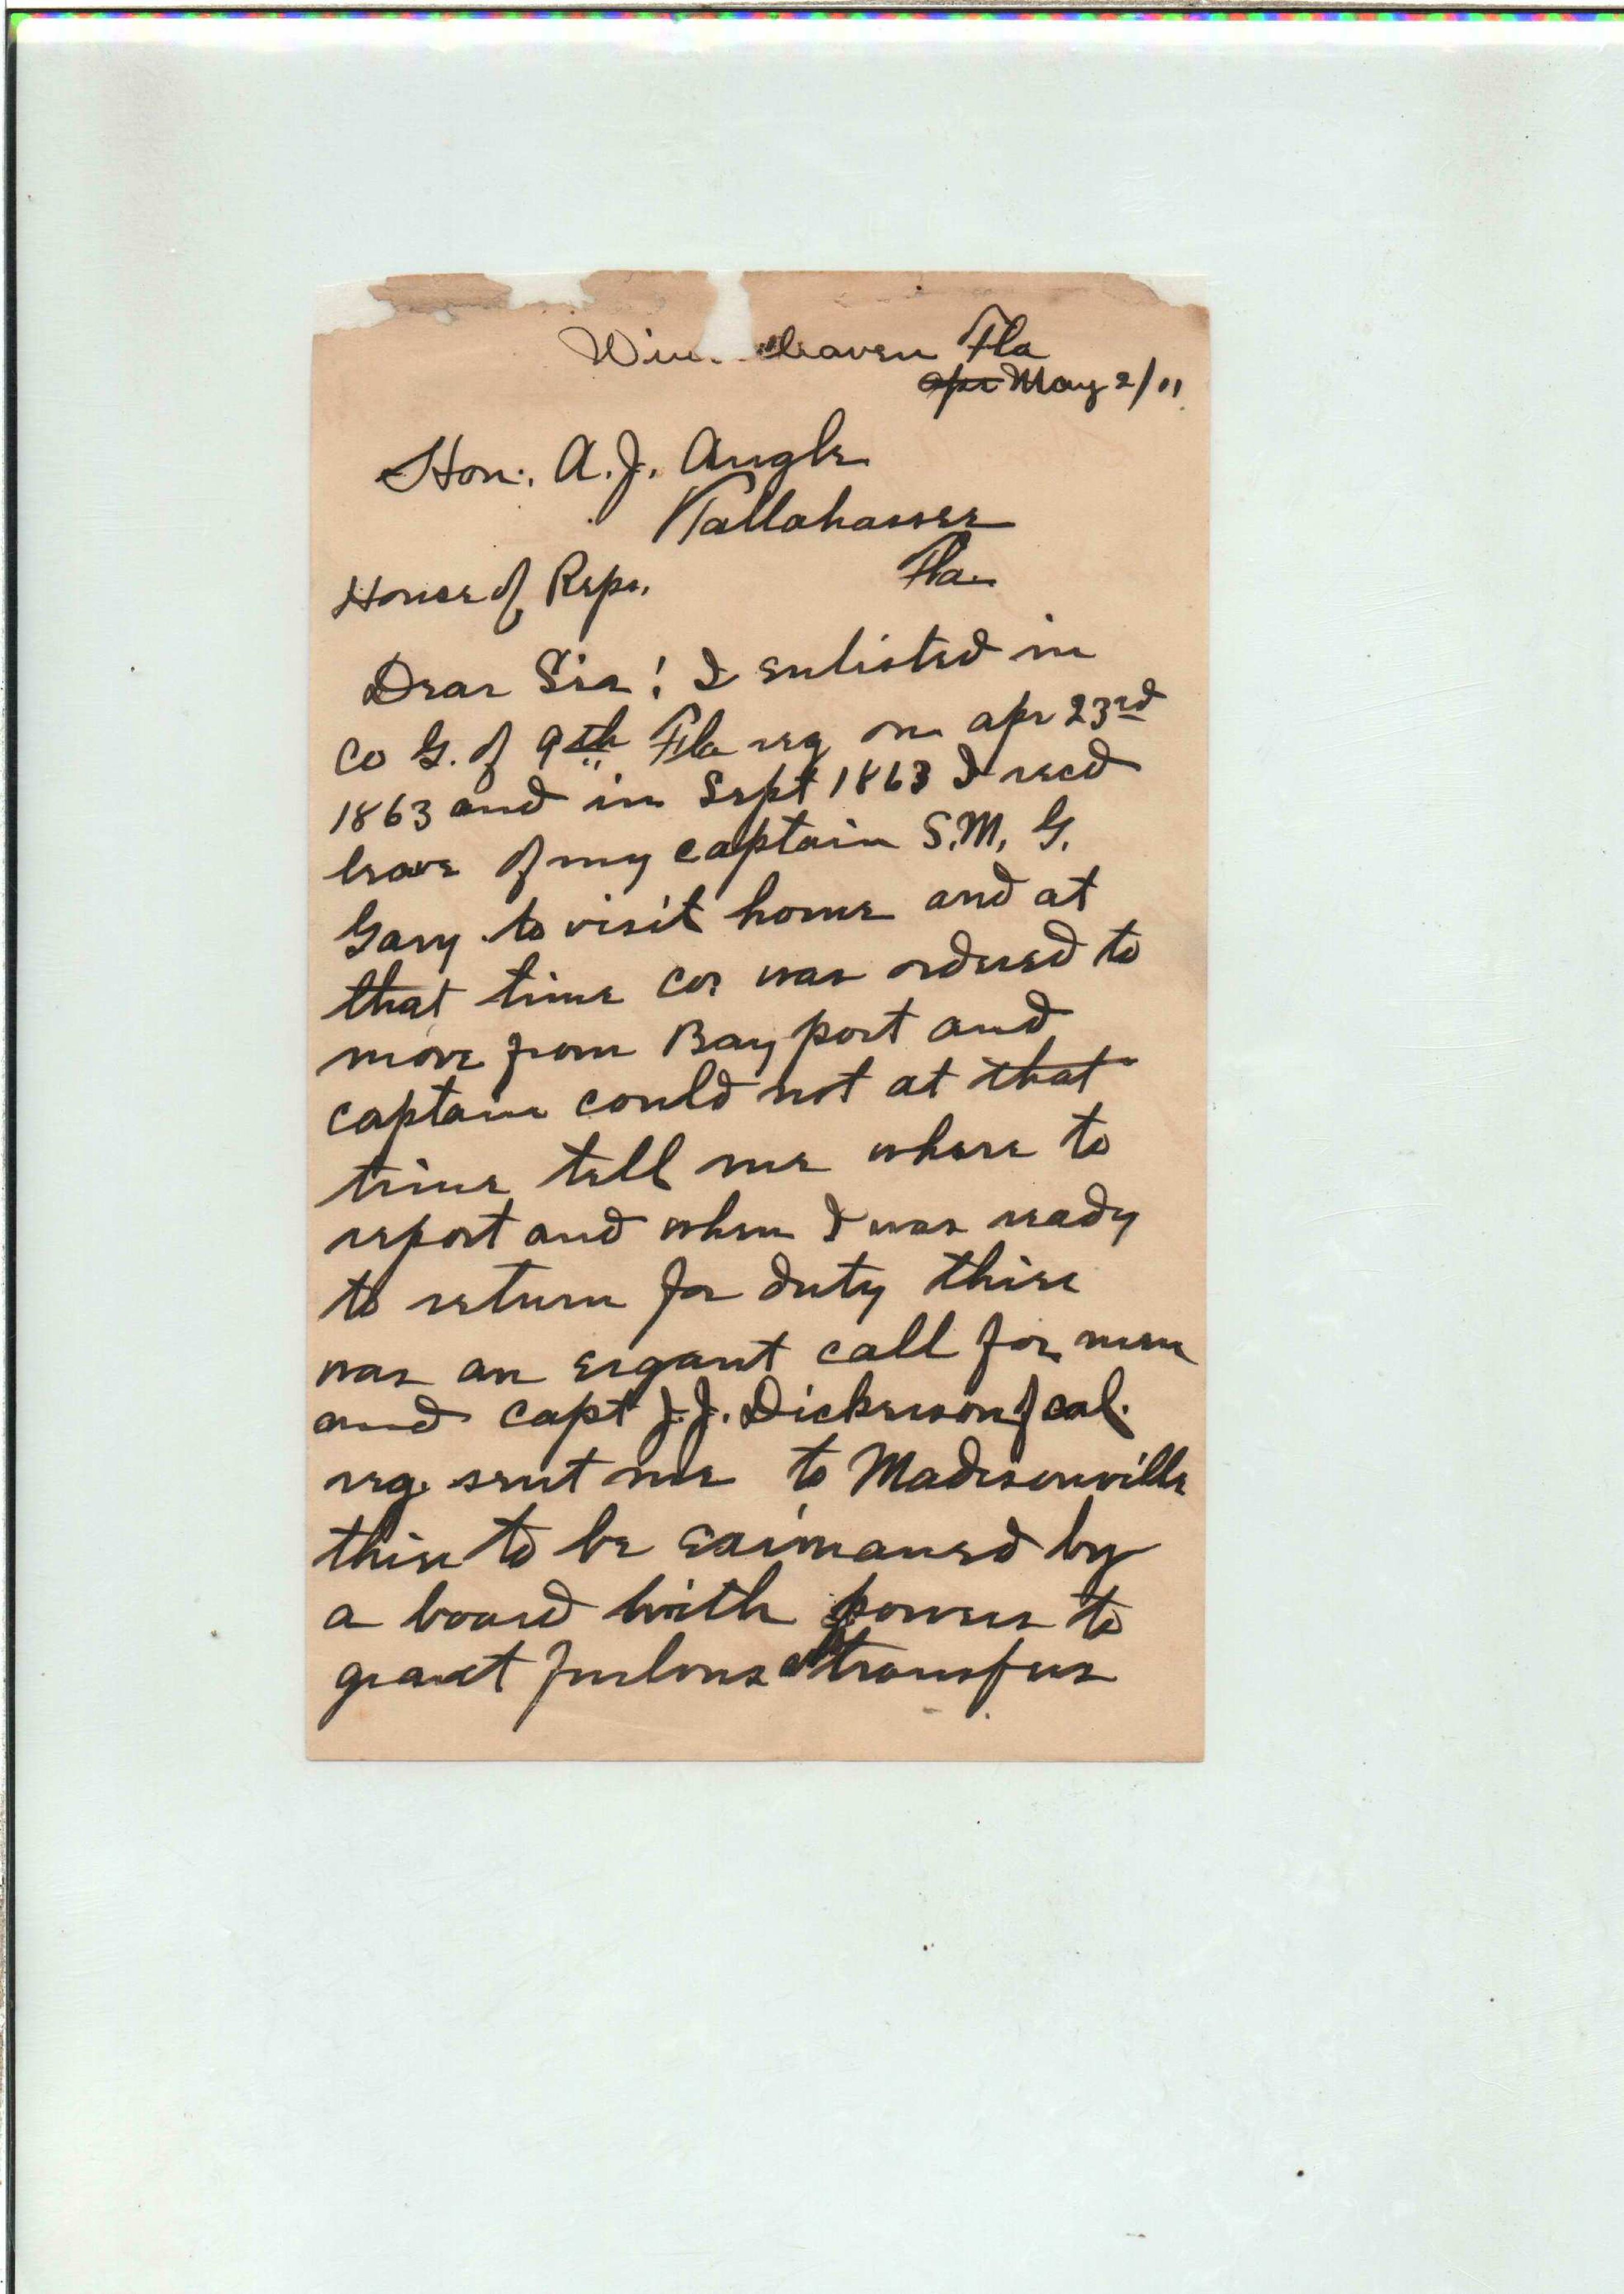 Win Haven Fla
apr May 2/11
Hon. A. J. Angle
Tallahassee
House of Reps. Fla.
Dear Sir! I enlisted in
Co G. of 9th Fla reg on apr 23rd
1863 and in Sept 1863 I recd
leave of my captain S.M. G.
Gary to visit home and at
that time co. was ordered to
move from Bay port and
captain could not at that
time tell me where to
report and when I was ready
to return for duty thire
was an ergant call for men
and capt J.J. Dickerson of cal.
reg. sent me to Madisonville
thire to be examaned by
a board with powers to
grant furlous & transfers